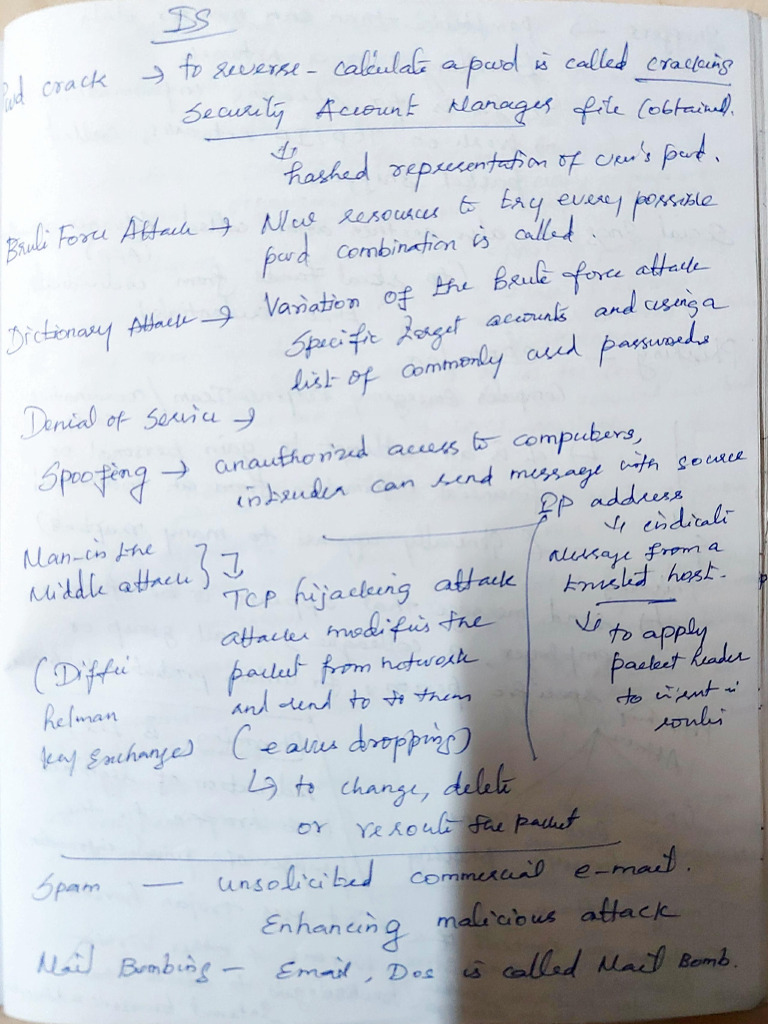 IS
Pwd crack → to reverse - calculate a pwd is called cracking
Security Account Manager file (obtained).
↓
hashed representation of user's pwd.
Brute Force Attack → N/w resources to try every possible
pwd combination is called
Dictionary Attack → Variation of the Brute force attack
Specific target accounts and using a
list of commonly used passwords
Denial of Service →
Spoofing → unauthorized access to computers,
intruder can send message with source
IP address
↓ indicati
Message from a
trusted host.
↓ to apply
packet header
to insert
Man-in the
Middle attack } →
TCP hijacking attack
attacker modifies the
packet from network
and send to to them
(eaves dropping)
↳ to change, delete
or reroute the packet
(Diffie
helman
key Exchange)
Spam — unsolicited commercial e-mail.
Enhancing malicious attack
Mail Bombing - Email, Dos is called Mail Bomb.